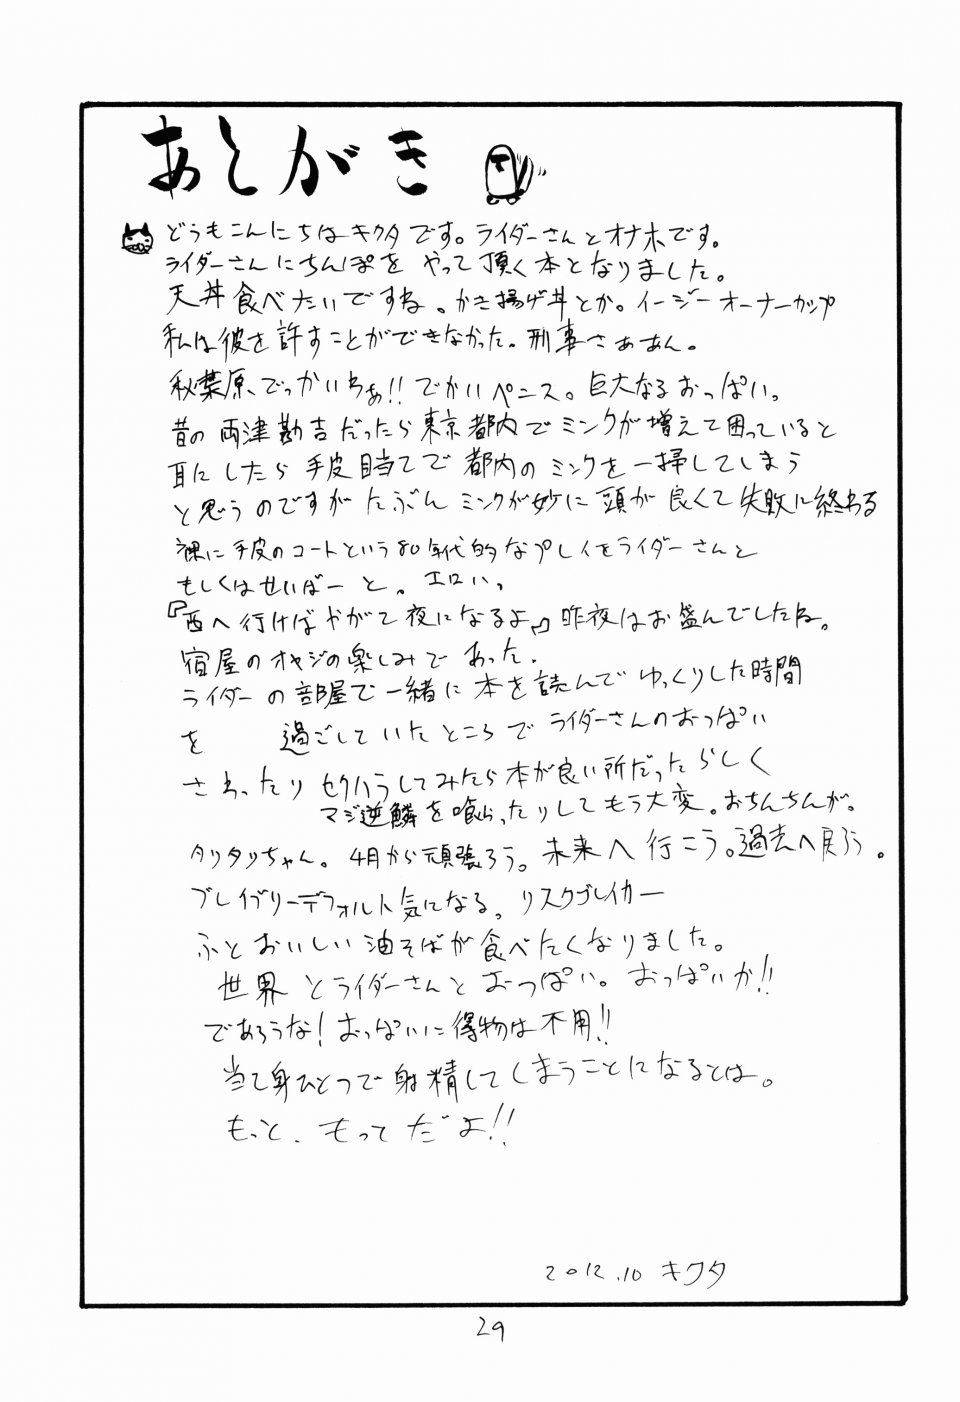 あしがき
どうもこんにちはキクタです。ライダーさんとオナホです。
ライダーさんにちんぽを やって頂く本となりました。
天丼食べたいですね。かき揚げ丼とか。イージーオーナーカップ
私は彼を許すことができなかった。刑事さぁあん。
秋葉原、でっかいわぁ!!でかいペニス。巨大なるおっぱい。
昔の両津勘吉だったら東京都内でミンクが増えて困っていると
耳にしたら毛皮目当てで都内のミンクを一掃してしまう
と思うのですがたぶんミンクが妙に頭が良くて失敗に終わる
裸に毛皮のコートという80年代的なプレイをライダーさんと
もしくはせいばーと。エロい。
『西へ行けばやがて夜になるよ』昨夜はお盛んでしたね。
宿屋のオヤジの楽しみであった。
ライダーの部屋で一緒に本を読んでゆっくりした時間
を 過ごしていたところでライダーさんのおっぱい
さわったりセクハラしてみたら本が良い所だったらしく
マジ逆鱗を喰らったりしてもう大変。おちんちんが。
タリタリちゃん。4月から頑張ろう。未来へ行こう。過去へ戻ろう。
ブレイブリーデフォルト気になる。リスクブレイカー
ふとおいしい油そばが食べたくなりました。
世界とライダーさんとおっぱい。おっぱいか!!
であろうな!おっぱいに得物は不用!!
当て身ひとつで射精してしまうことになるとは。
もっと、もってだよ!!
2012.10 キクタ
29